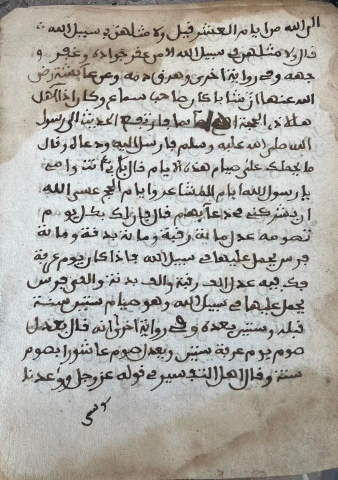 الى الله من ايام العشر قيل ولا مثلهن في سبيل الله
قال ولا مثلهن في سبيل الله الا من عفر جواده وعفر
وجهه وفي رواية اخرى وهرق دمه وعن عائشة رضي
الله عنها ان شابا كان صاحب سماع وكان اذا اهل
هلال ذي الحجة اصبح صائما فارتفع الحديث الى رسول
الله صلى الله عليه وسلم فارسل اليه ودعاه وقال
ما يحملك على صيام هذه الايام قال بابي انت وامي
يا رسول الله ايام المشاعر وايام الحج عسى الله
ان يشركني في دعائهم قال فان لك بكل يوم
تصومه عدل مائة رقبة ومائة بدنة ومائة
فرس يحمل عليها في سبيل الله فاذا كان يوم عرفة
فلك فيه عدل الف رقبة والف بدنة والف فرس
يحمل عليها في سبيل الله وهو صيام سنتين سنة
قبله وسنتين بعده وفي رواية اخرى انه قال يعدل
صوم يوم عرفة سنتين ويعدل صوم عاشورا بصوم
سنة وقال اهل التفسير في قوله عز وجل ووعدنا